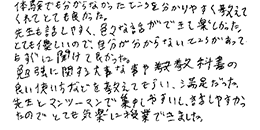 体験でも分からなかったところを分かりやすく教えて
くれてとても良かった。
先生も話しやすく、色々な話ができて楽しかった。
とても優しいので、自分が分からないところがあっても
すぐに聞けて良かった。
勉強に関する大事な事や教科書の
良い使い方などを教えてもらい、満足だった。
先生とマンツーマンで集中しやすいし、話しやすかっ
たのでとても気楽に授業できました。